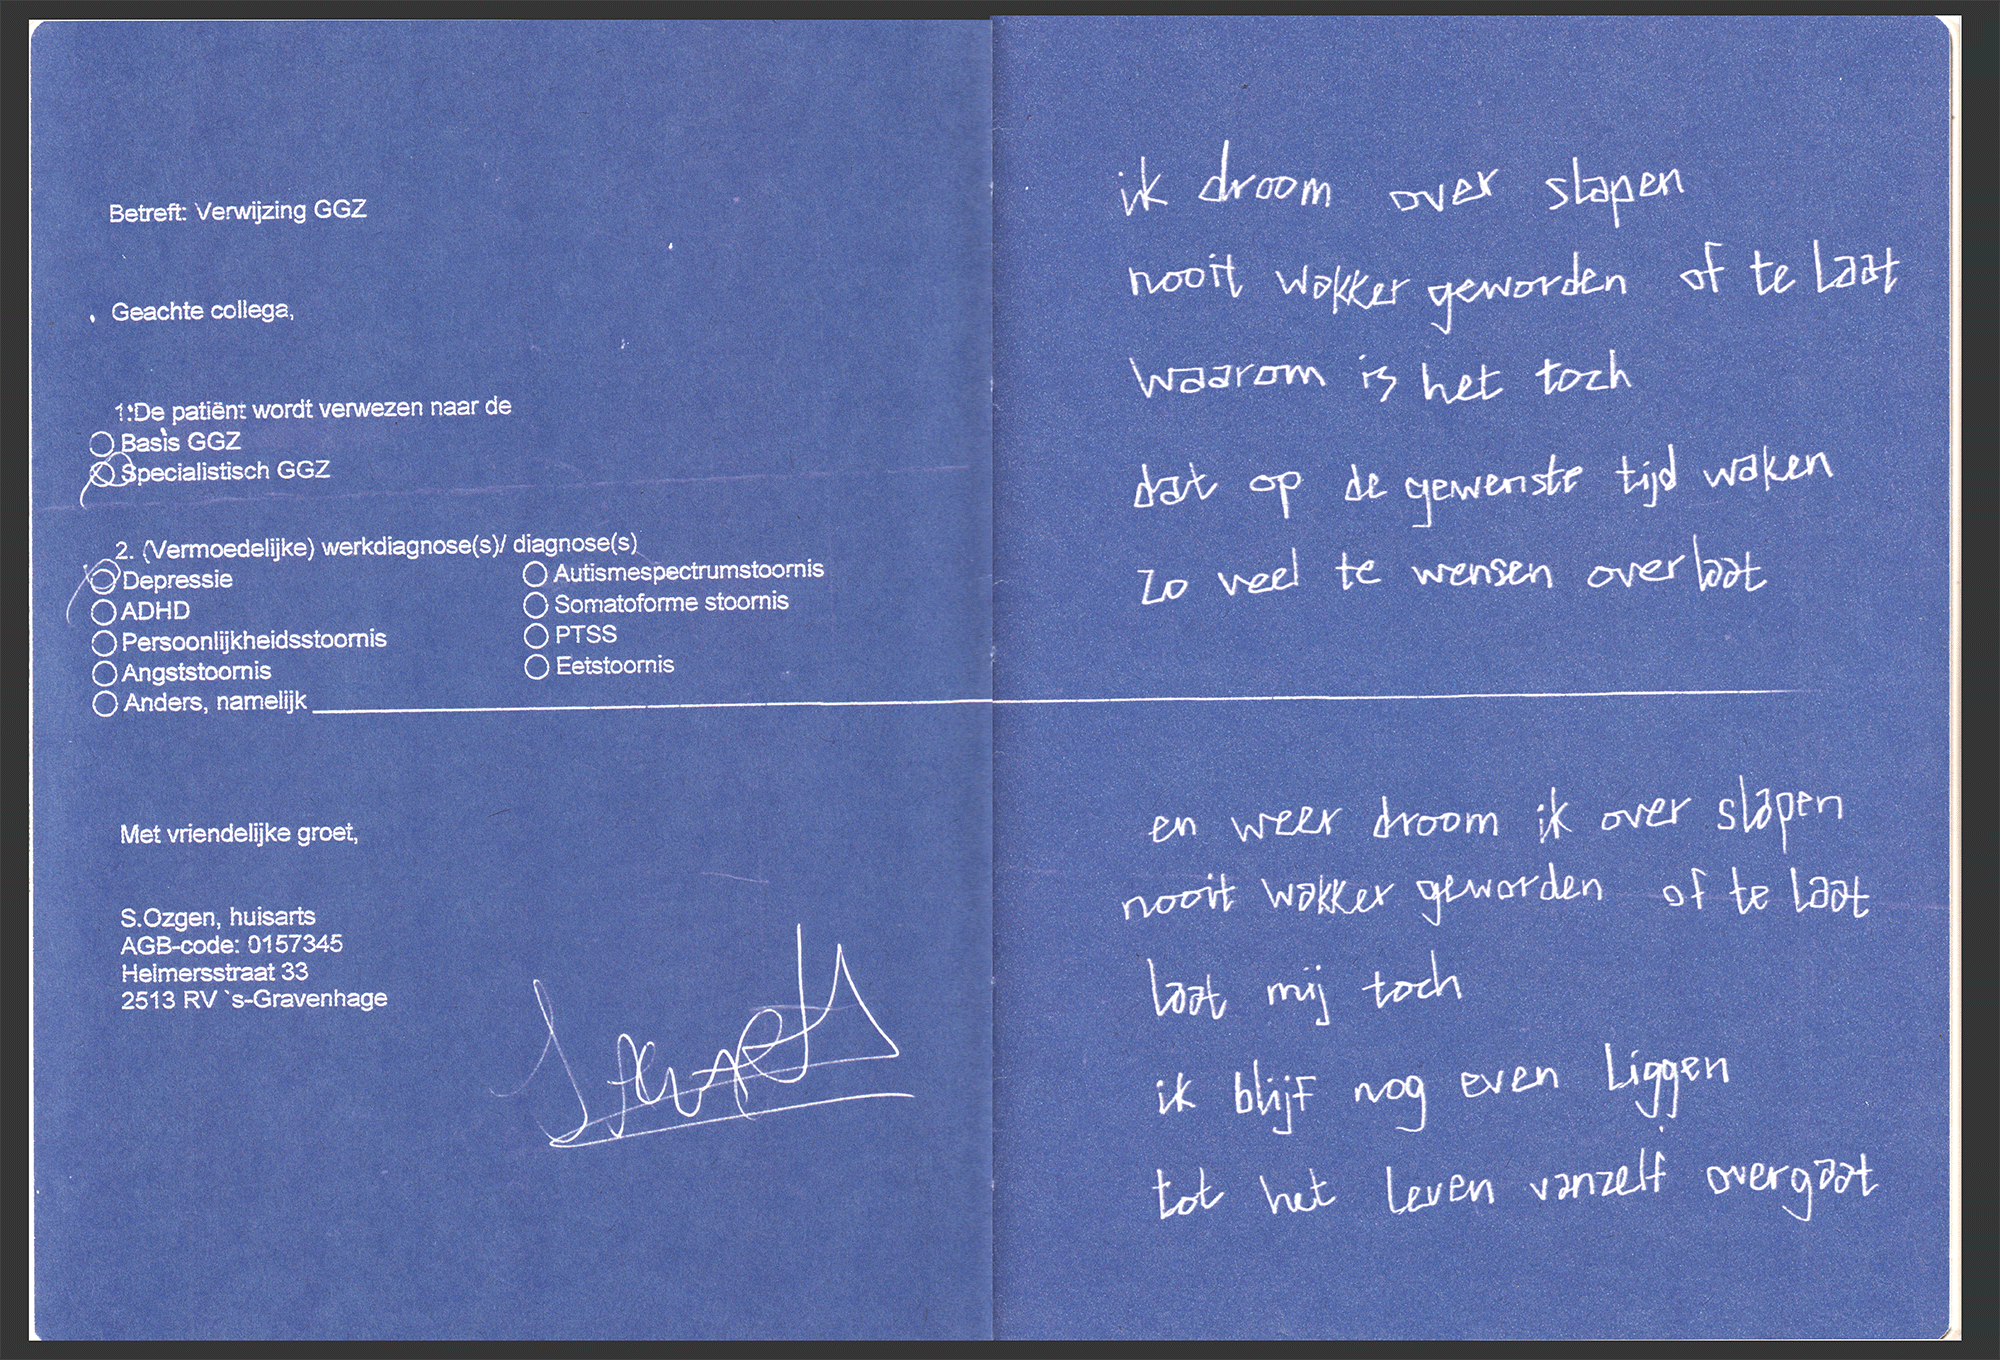 Betreft: Verwijzing GGZ
Geachte collega,
1.De patiënt wordt verwezen naar de
Basis GGZ
Specialistisch GGZ
2. (Vermoedelijke) werkdiagnose(s)/ diagnose(s)
Depressie
ADHD
Persoonlijkheidsstoornis
Angststoornis
Anders, namelijk
Autismespectrumstoornis
Somatoforme stoornis
PTSS
Eetstoornis
Met vriendelijke groet,
S.Ozgen, huisarts
AGB-code: 0157345
Heimersstraat 33
2513 RV `s-Gravenhage
ik droom over slapen
nooit wakker geworden of te laat
waarom is het toch
dat op de gewenste tijd waken
zo veel te wensen over laat
en weer droom ik over slapen
nooit wakker geworden of te laat
laat mij toch
ik blijf nog even liggen
tot het leven vanzelf overgaat